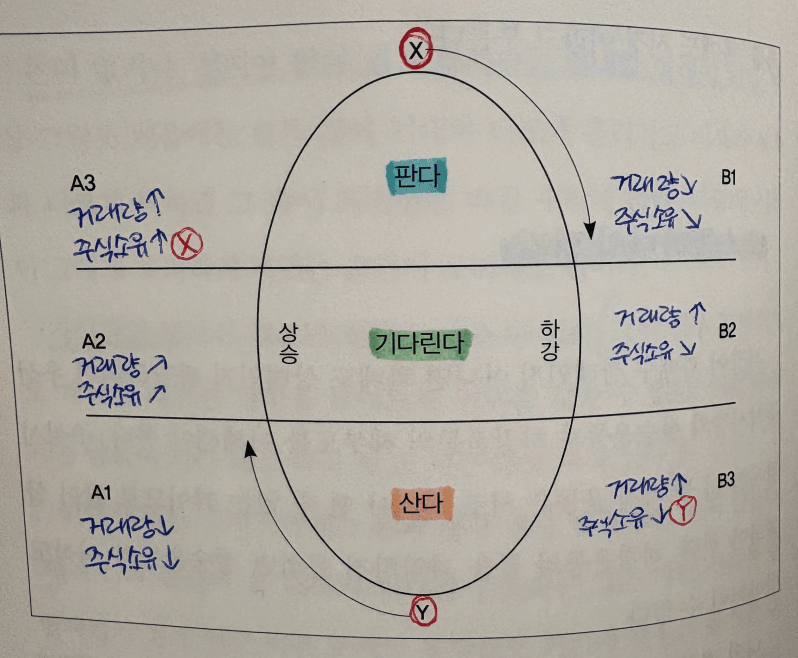 X
판다
A3
거래량↑
주식소유↑ X
B1
거래량↘
주식소유↘
상승
기다린다
하강
A2
거래량↗
주식소유↗
B2
거래량↑
주식소유↘
산다
A1
거래량↓
주식소유↓
B3
거래량↑
주식소유↓ Y
Y